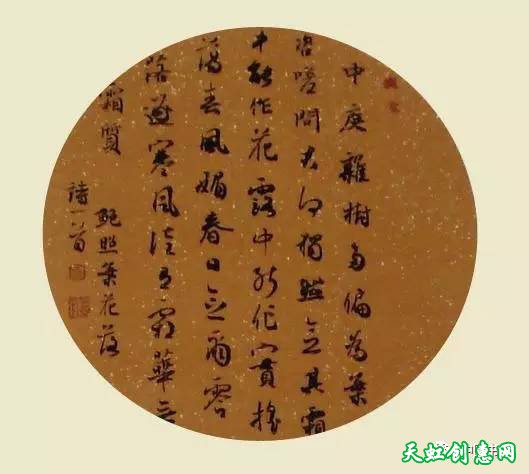 中庭雜樹多偏為梅
咨嗟問君何獨然念其霜
中能作花露中能作實搖
蕩春風媚春日念爾零
落逐寒風徒有霜華無
霜質 鮑照梅花落
詩一首
天虹创意网